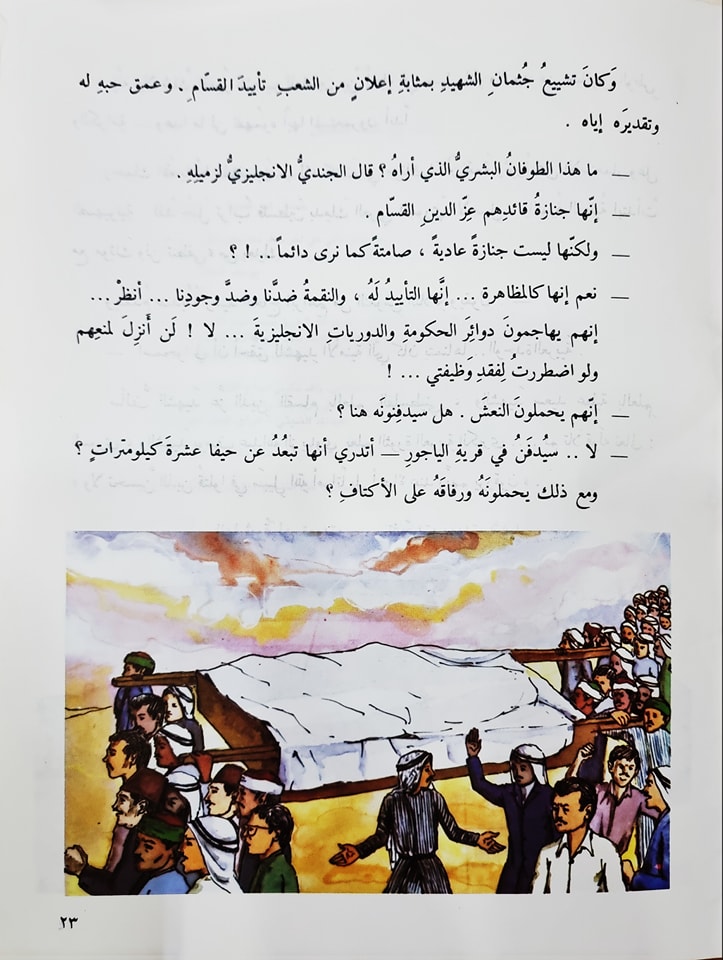 وَكانَ تشييعُ جُثمانِ الشهيدِ بمثابةِ إعلانٍ من الشعبِ تأييدَ القسّامِ . وعمق حبهِ له
وتقديرَه إياه .
— ما هذا الطوفانُ البشريُّ الذي أراهُ ؟ قال الجنديُّ الانجليزيُّ لزميلِهِ .
— إنّها جنازةُ قائدِهم عِزِّ الدينِ القسّام .
— ولكنّها ليست جنازةً عاديةً ، صامتةً كما نرى دائماً .. ! ؟
— نعم إنها كالمظاهرة ... إنَّها التأييدُ لَهُ ، والنقمةُ ضدَّنا وضدَّ وجودِنا ... أنظرْ ...
إنهم يهاجمونَ دوائرَ الحكومةِ والدورياتِ الانجليزيةَ ... لا ! لَن أَنزِلَ لمنعِهم
ولو اضطررتُ لِفقدِ وَظيفتي ... !
— إنّهم يحملونَ النعشَ . هل سيدفِنونَه هنا ؟
— لا .. سيُدفَنُ في قريةِ الياجورِ — أتدري أنها تبعُدُ عن حيفا عشرةَ كيلومتراتٍ ؟
ومع ذلك يحملونَهُ ورفاقَهُ على الأكتافِ ؟
٢٣